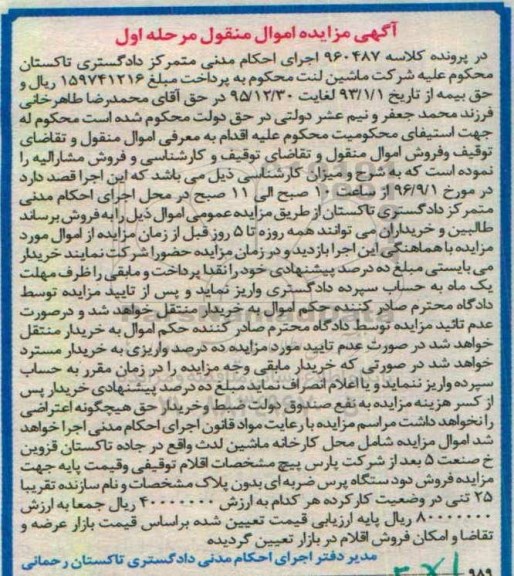 آگهی مزایده اموال منقول مرحله اول
در پرونده کلاسه ۹۶۰۴۸۷ اجرای احکام مدنی متمرکز دادگستری تاکستان
محکوم علیه شرکت ماشین لنت محکوم به پرداخت مبلغ ۱۵۹۷۴۱۲۱۶ ریال و
حق بیمه از تاریخ ۹۳/۱/۱ لغایت ۹۵/۱۲/۳۰ در حق آقای محمدرضا طاهرخانی
فرزند محمد جعفر و نیم عشر دولتی در حق دولت محکوم شده است محکوم له
جهت استیفای محکومیت محکوم علیه اقدام به معرفی اموال منقول و تقاضای
توقیف وفروش اموال منقول و تقاضای توقیف و کارشناسی و فروش مشارالیه را
نموده است که به شرح و میزان کارشناسی ذیل می باشد که این اجرا قصد دارد
در مورخ ۹۶/۹/۱ از ساعت ۱۰ صبح الی ۱۱ صبح در محل اجرای احکام مدنی
متمرکز دادگستری تاکستان از طریق مزایده عمومی اموال ذیل را به فروش برساند
طالبین و خریداران می توانند همه روزه تا ۵ روز قبل از زمان مزایده از اموال مورد
مزایده با هماهنگی این اجرا بازدید و در زمان مزایده حضورا شرکت نمایند خریدار
می بایستی مبلغ ده درصد پیشنهادی خود را نقدا پرداخت و مابقی را ظرف مهلت
یک ماه به حساب سپرده دادگستری واریز نماید و پس از تایید مزایده توسط
دادگاه محترم صادر کننده حکم اموال به خریدار منتقل خواهد شد و درصورت
عدم تائید مزایده توسط دادگاه محترم صادر کننده حکم اموال به خریدار منتقل
خواهد شد در صورت عدم تایید مورد مزایده ده درصد واریزی به خریدار مسترد
خواهد شد در صورتی که خریدار مابقی وجه مزایده را در زمان مقرر به حساب
سپرده واریز ننماید و یا اعلام انصراف نماید مبلغ ده درصد پیشنهادی خریدار پس
از کسر هزینه مزایده به نفع صندوق دولت ضبط و خریدار حق هیچگونه اعتراضی
را نخواهد داشت مراسم مزایده با رعایت مواد قانون اجرای احکام مدنی اجرا خواهد
شد اموال مزایده شامل محل کارخانه ماشین لدث واقع در جاده تاکستان قزوین
خ صنعت ۵ بعد از شرکت پارس پیچ مشخصات اقلام توقیفی وقیمت پایه جهت
مزایده فروش دود ستگاه پرس ضربه ای بدون پلاک مشخصات و نام سازنده تقریبا
۲۵ تنی در وضعیت کار کرده هر کدام به ارزش ۴۰۰۰۰۰۰۰ ریال جمعا به ارزش
۸۰۰۰۰۰۰۰ ریال پایه ارزیابی قیمت تعیین شده براساس قیمت بازار عرضه و
تقاضا و امکان فروش اقلام در بازار تعیین گردیده
مدیر دفتر اجرای احکام مدنی دادگستری تاکستان رحمانی
۹۸۹